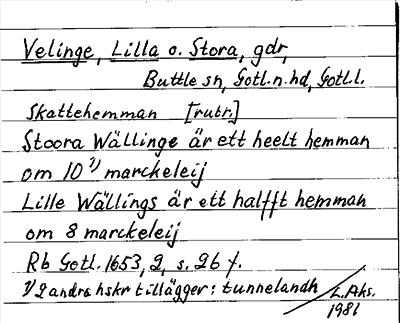 Velinge, Lilla o. Stora, gdr,
Buttle sn, Gotl. n. hd, Gotl. l.
Skattehemman [rutr.]
Stoora Wällinge är ett heelt hemman
om 10 1) marckeleij
Lille Wällings är ett halfft hemman
om 8 marckeleij
Rb Gotl. 1653, 2, s. 26 f.
1) 2 andra hskr tillägger: tunnelandh
L. Aks.
1981